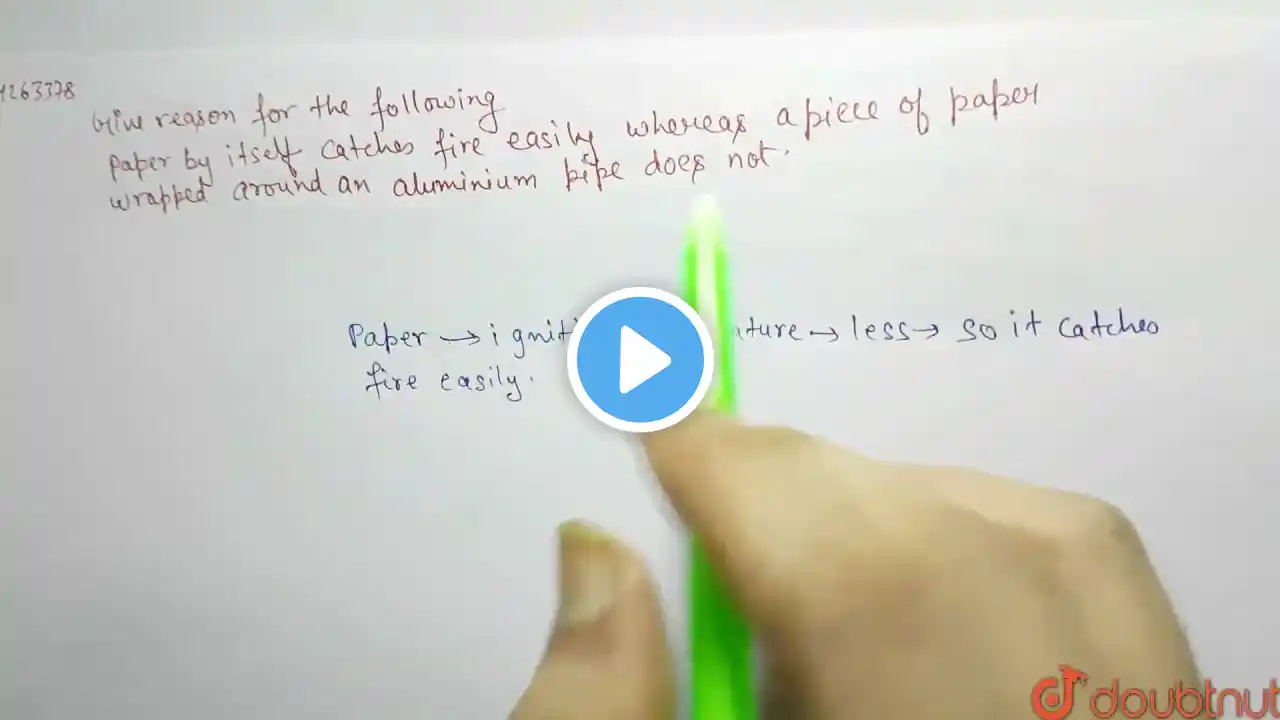 1263378
Give reason for the following
paper by itself catches fire easily whereas a piece of paper
wrapped around an aluminium pipe does not.
Paper → igniti ature → less → so it catches
fire easily.
doubtnut